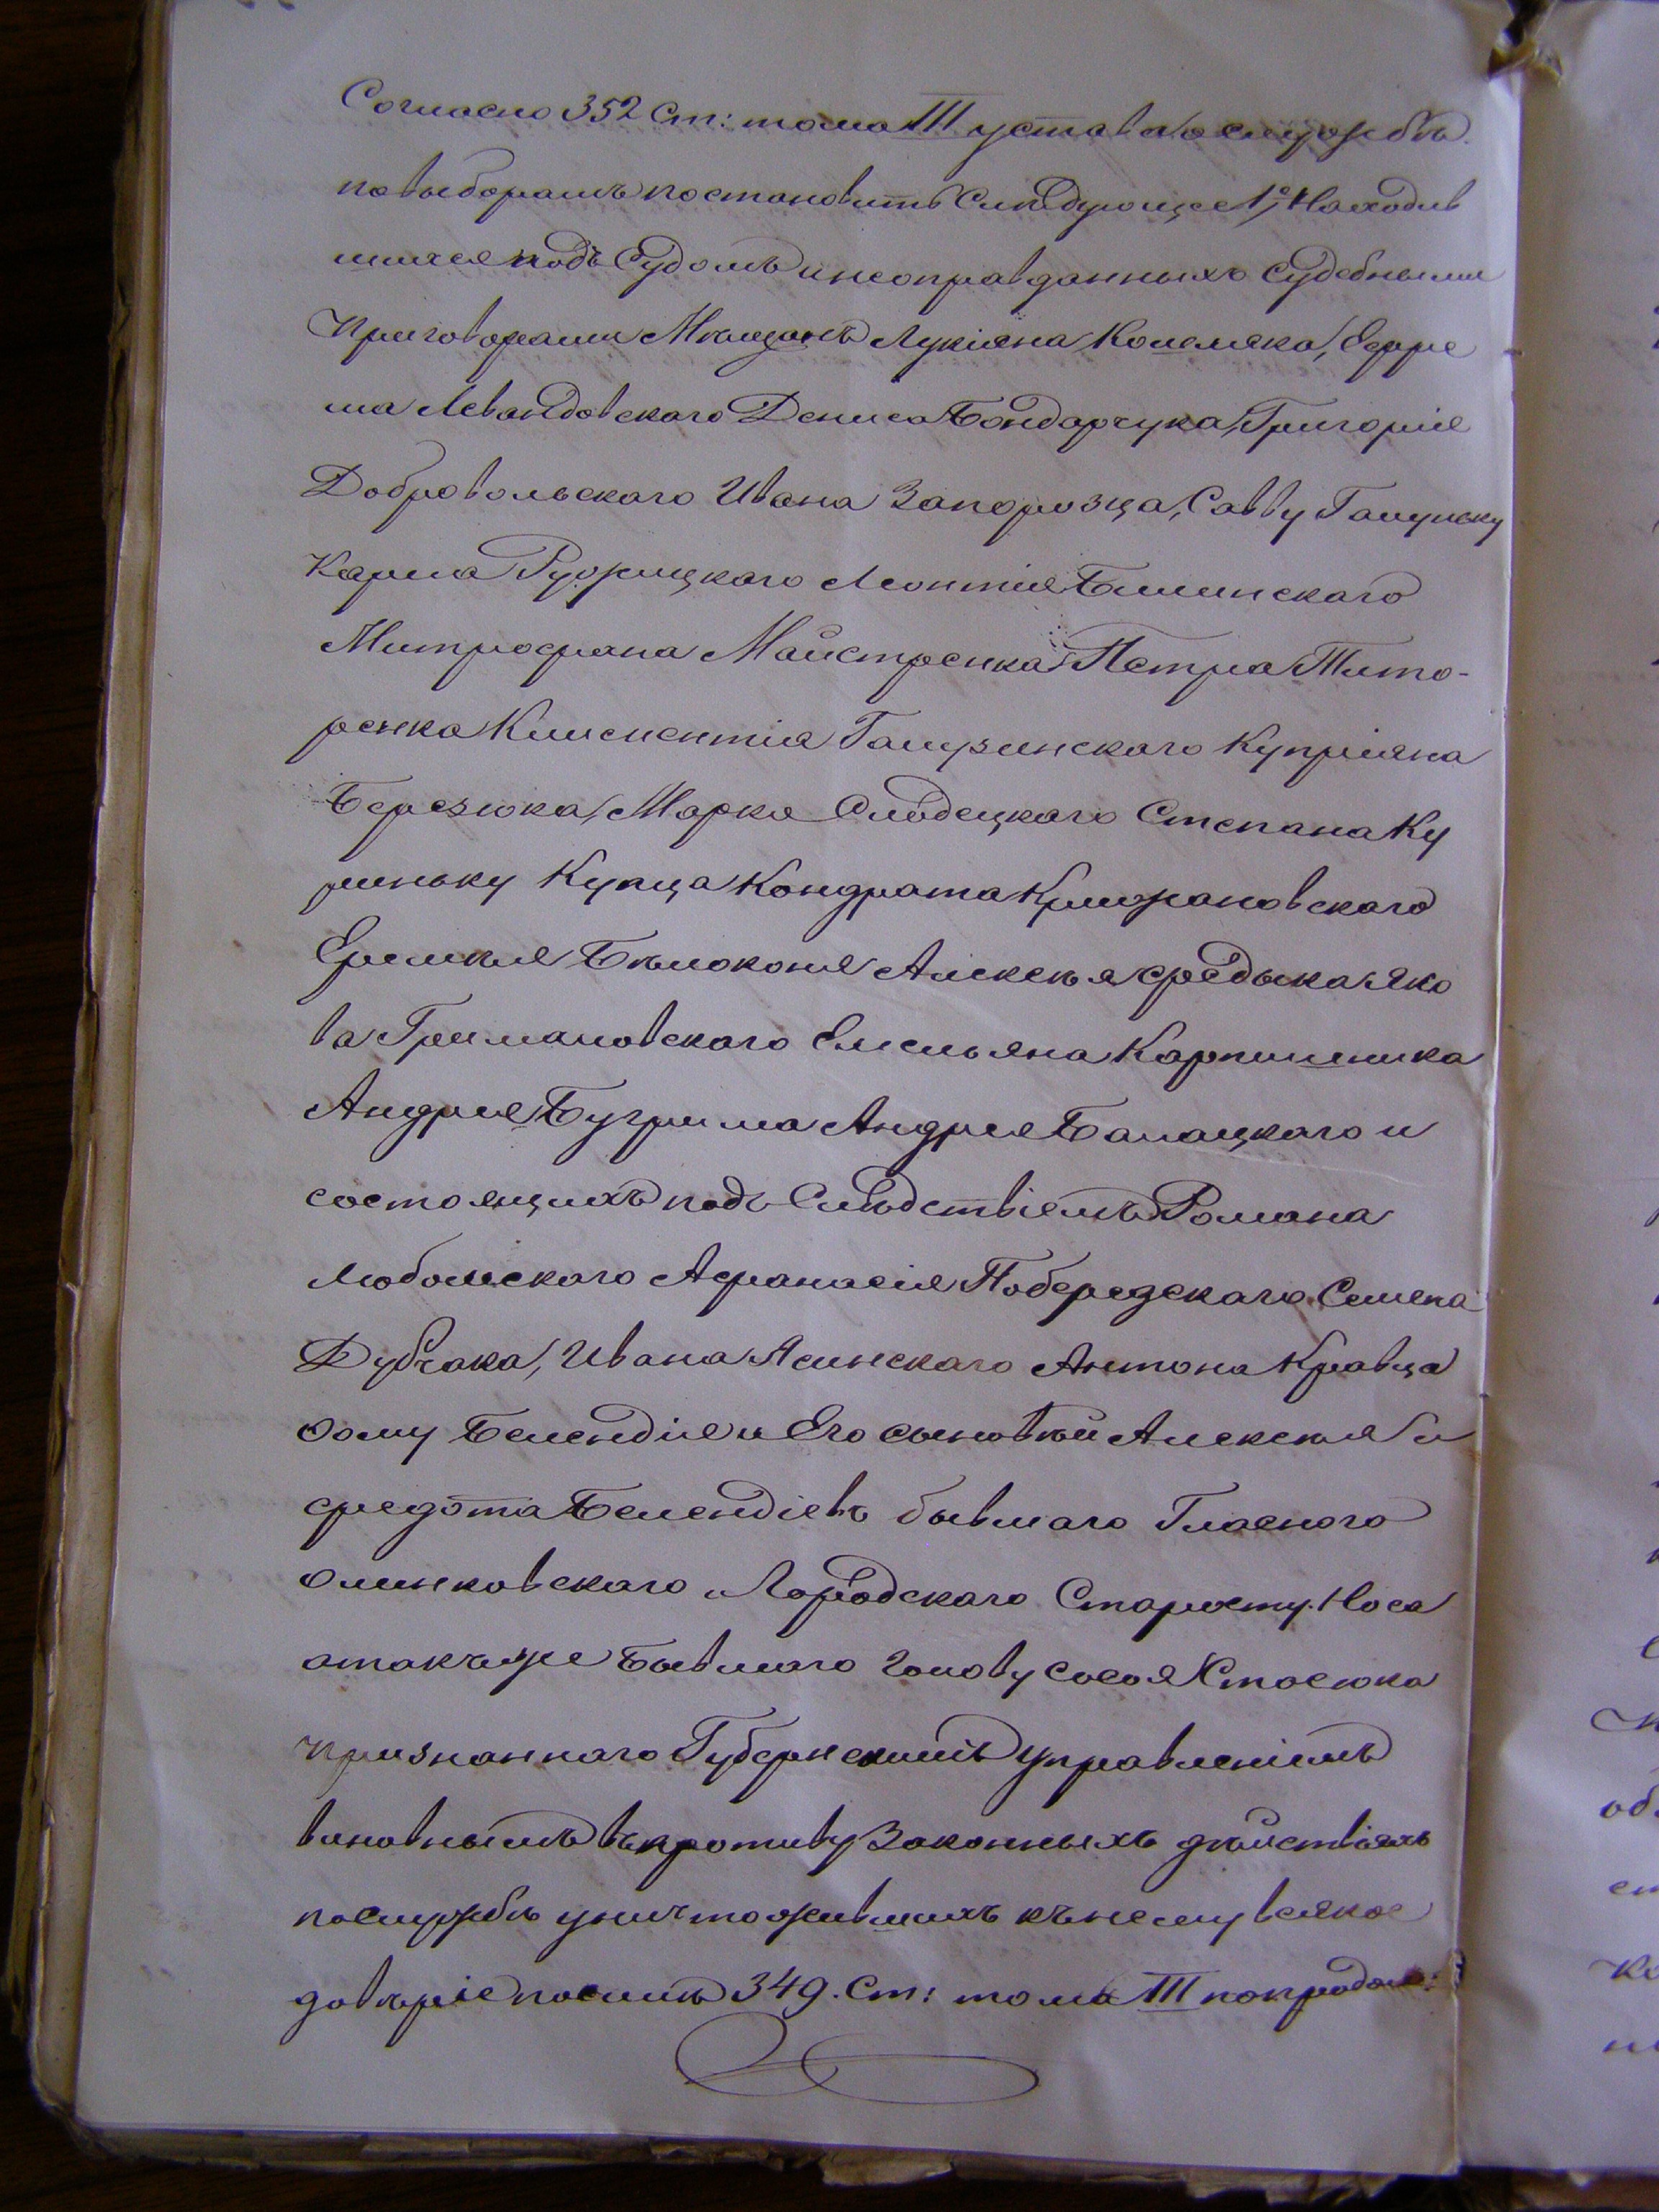 Согласно 352 Ст: тома III устава о службѣ
по выборамъ постановить Слѣдующее 1е, Находив
шихся подъ Судомъ и неоправданныхъ судебными
Приговорами Мѣщанъ Лукіяна Кожемяка, Ефре
ма Левандовскаго Дениса Бондарчука, Григорія
Добровольскаго Ивана Запорозца, Савву Галуньку
Карпа Ружицкаго Леонтія Билинскаго
Митрофана Майстренка Петра Тито-
ренка Климентія Галузинскаго Купріяна
Березюка, Марка Слободецкаго Степана Ку
риньку Купца Кондрата Крижановскаго
Еремѣя Бѣлоконя Алексѣя Федыка Яко
ва Грималовскаго Емельяна Карпишника
Андрея Бугрима Андрея Балацкаго и
состоящихъ подъ Слѣдствіемъ Романа
Любомскаго Афанасія Побережскаго Семена
Дубчака, Ивана Ясинскаго Антона Кравца
Фому Белендія и Его сыновѣй Алексѣя и
Федота Белендіевъ бывшаго Гласнаго
Олинковскаго Городскаго Старосту Носа
а такъже Бывшаго Голову Сысоя Стасюка
признаннаго Губернскимъ Управленіемъ
виновнымъ въ противу Законныхъ дѣйствіяхъ
по службѣ уничтожившихъ къ нему всякое
довѣріе по силѣ 349. Ст: тома III по продол: